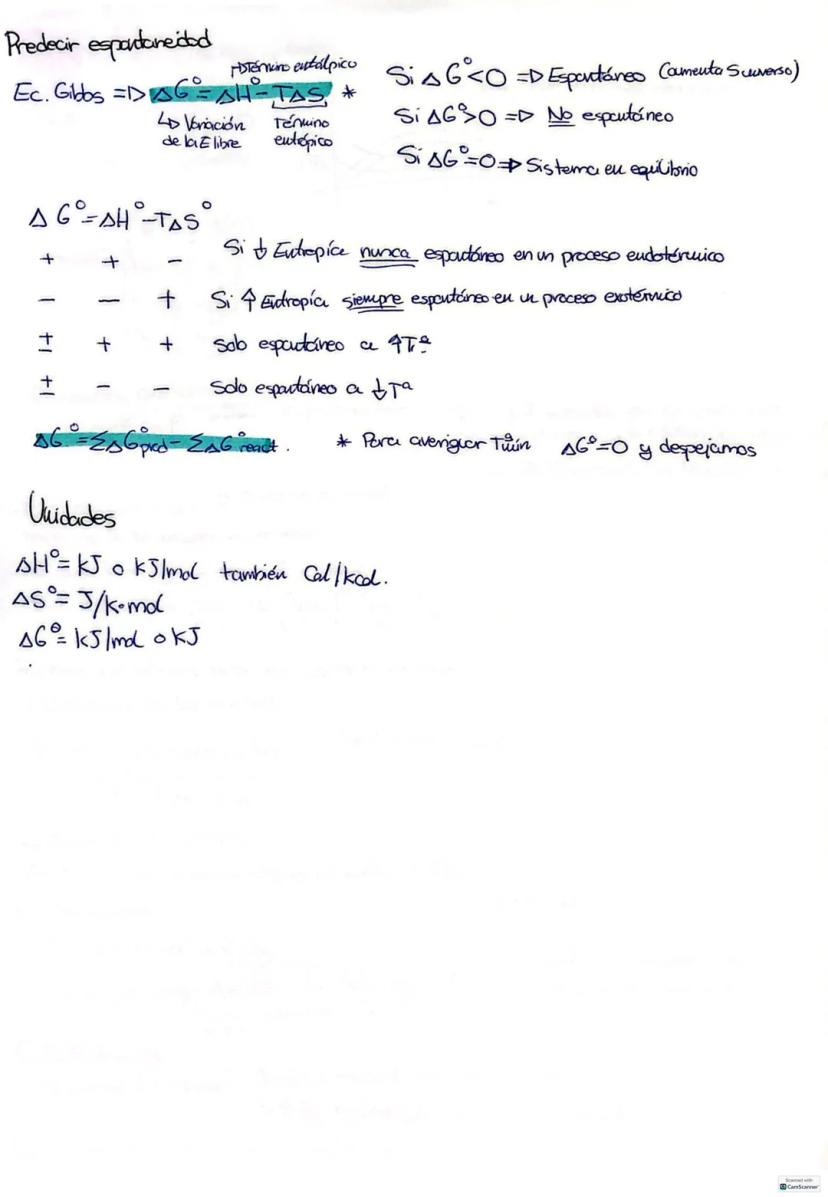 Predecir espontaneidad
Ec. Gibbs => ΔG° = ΔH° - TΔS *
↱ Término entálpico
↳ Variación de la E libre
Término entrópico
Si ΔG° < 0 => Espontáneo (aumenta S universo)
Si ΔG° > 0 => No espontáneo
Si ΔG° = 0 => Sistema en equilibrio
ΔG° = ΔH° - TΔS°
+ + - Si ↓ Entropía nunca espontáneo en un proceso endotérmico
- - + Si ↑ Entropía siempre espontáneo en un proceso exotérmico
± + + Solo espontáneo a ↑Tª
± - - Solo espontáneo a ↓Tª
ΔG° = ΣΔG°prod - ΣΔG°react. * Para averiguar Tªmín ΔG° = 0 y despejamos
Unidades
ΔH° = kJ o kJ/mol también Cal/kcal.
ΔS° = J/K·mol
ΔG° = kJ/mol o kJ
Scanned with
CamScanner